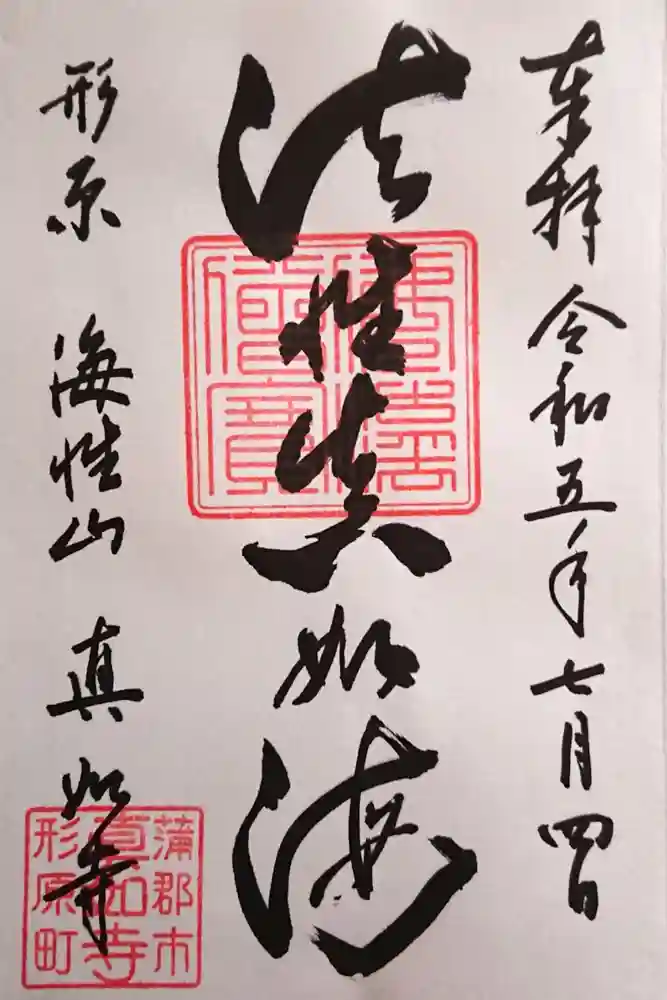 奉拝 令和五年七月四日
法性真如海
佛法僧寶
形原 海性山 真如寺
蒲郡市
真如寺
形原町